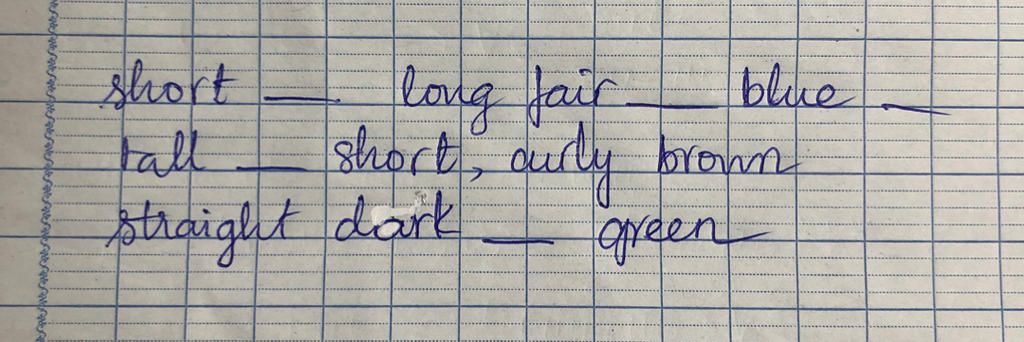 short — long fair — blue —
tall — short, curly brown
straight dark — green